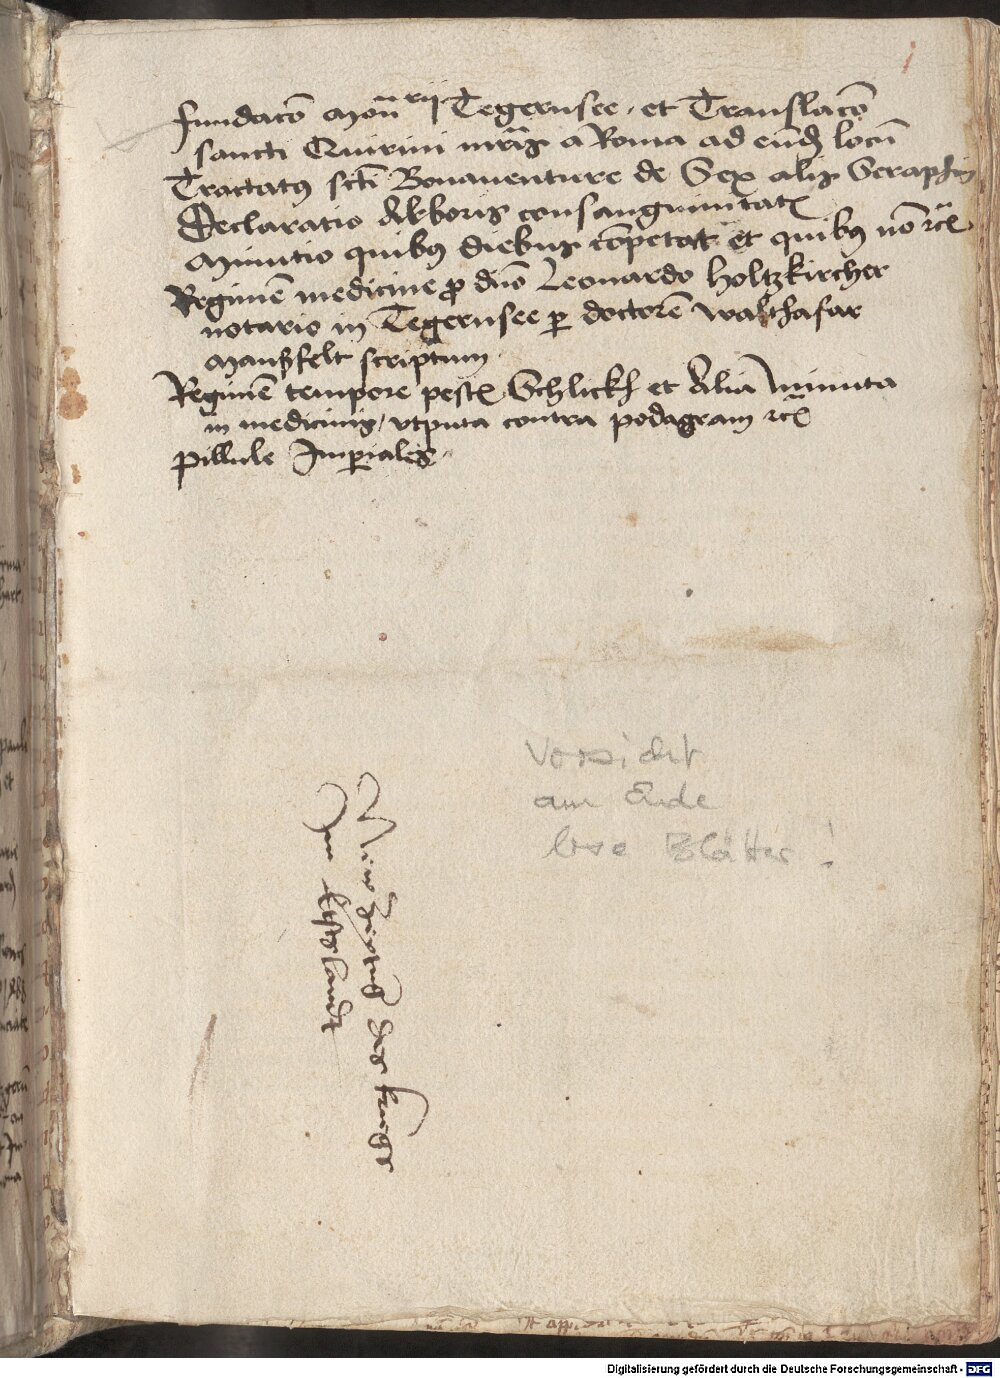 Fundacō Monrii Tegernsee · et Translacō
sancti Quirini mr̄is a Roma ad eūdē locū
Tractatꝰ scti Bonauenture de Sex alis Seraphin
Declaratio Arboris consanguinitatꝭ
Minutio quibꝰ diebus cōpetat et quibꝰ nō ꝛcꝭ
Regimē medicine ꝓ dn̄o Leonardo Holtzkircher
notario in Tegernsee ꝑ doctorē walthasar
Manßfelt scriptum ·
Regimē tempore pestꝭ Schlickh et Alia minuta
in medicinis / vtputa contra podagram ꝛcꝭ
Pillule Imꝑiales ·
des kriegs
Im
landt
Vorsicht
am Ende
lose Blätter !
Digitalisierung gefördert durch die Deutsche Forschungsgemeinschaft - DFG